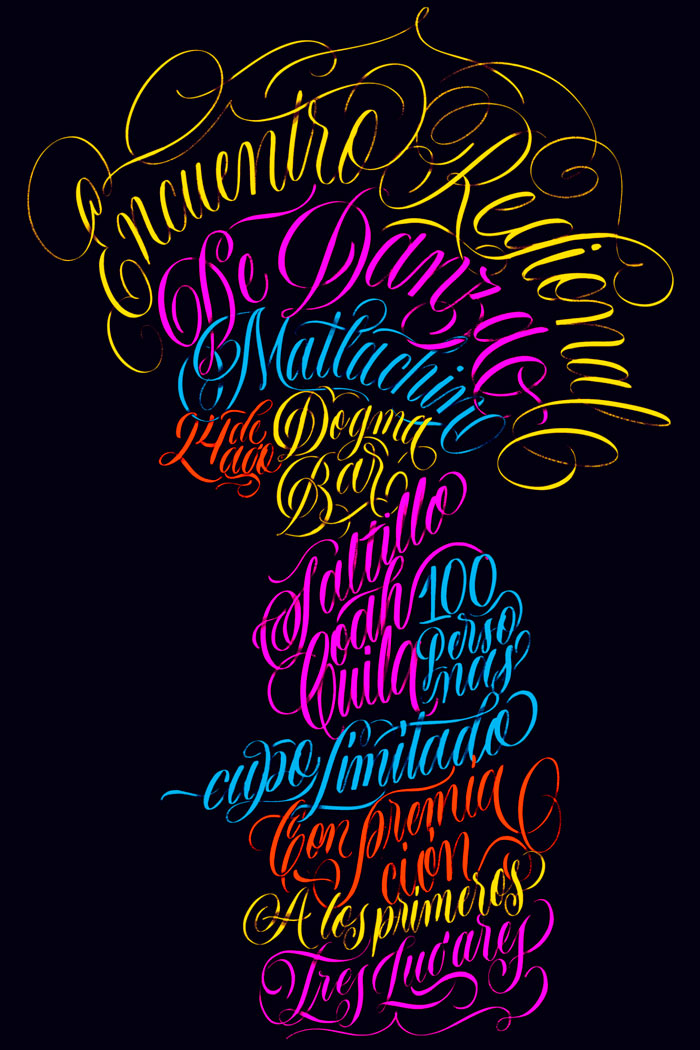 Encuentro Regional
De Danza
Matlachin
24 de ago
Dogma
Bar
Saltillo
Coah
uila
100
Perso
nas
cupo Limitado
Con premia
ción
A los primeros
Tres Lugares